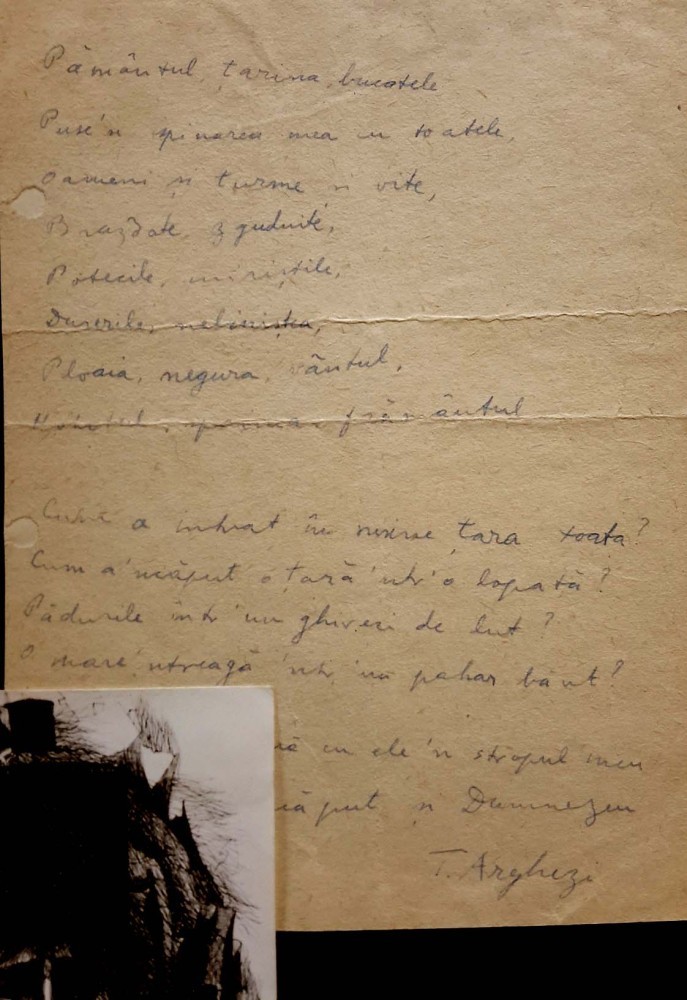 Pământul, țarina, bucatele
Puse'n spinarea mea cu toatele,
Oameni și turme și vite,
Brazdate, zguduite,
Potecile, miriștile,
Durerile, neliniștea,
Ploaia, negura, vântul,
frământul
Cum a intrat în mine țara toată?
Cum a'ncăput o țară 'ntr'o lopată?
Pădurile într'un ghiveci de lut?
O mare 'ntreagă 'ntr'un pahar băut?
cu ele'n stropul meu
și Dumnezeu
T. Arghezi